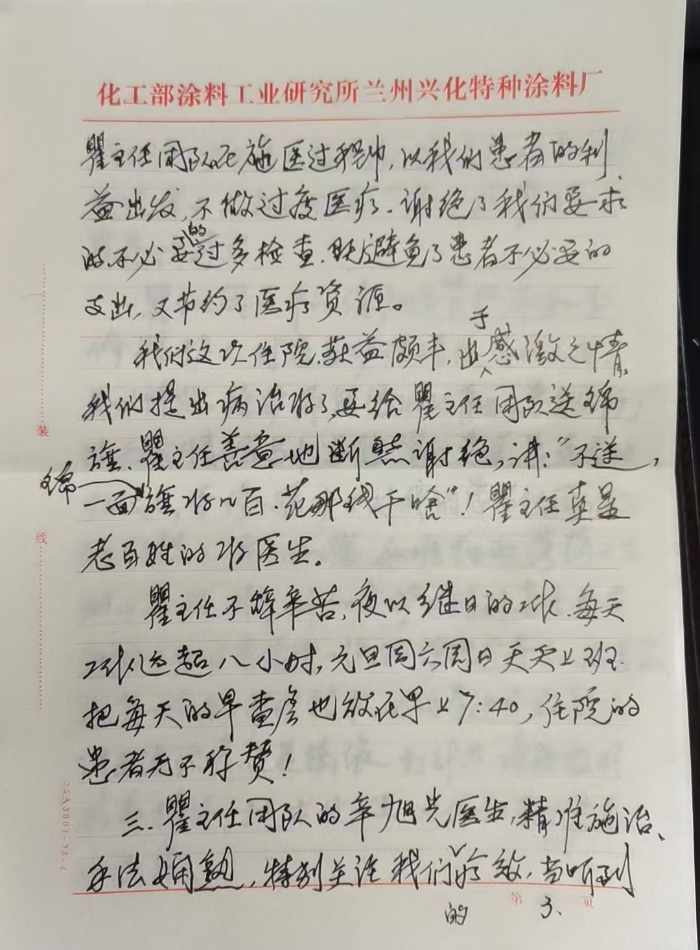 化工部涂料工业研究所兰州兴化特种涂料厂
瞿主任团队在施医过程中,以我们患者的利
益出发,不做过度医疗。谢绝了我们要求
的不必要的过多检查.既避免了患者不必要的
支出,又节约了医疗资源。
我们这次住院,获益颇丰,出于感激之情
我们提出病治好了,要给瞿主任团队送锦
旗、瞿主任善意地断然谢绝,讲:“不送,
一面锦旗好几百.花那钱干啥”!瞿主任真是
老百姓的好医生。
瞿主任不辞辛苦,夜以继日的工作.每天
工作远超八小时,元旦周六周日天天上班.
把每天的早查房也放在早上7:40,住院的
患者无不称赞!
三.瞿主任团队的辛旭光医生,精准施治、
手法娴熟,特别关注我们的疗效,当听到
装
线
第 3. 页